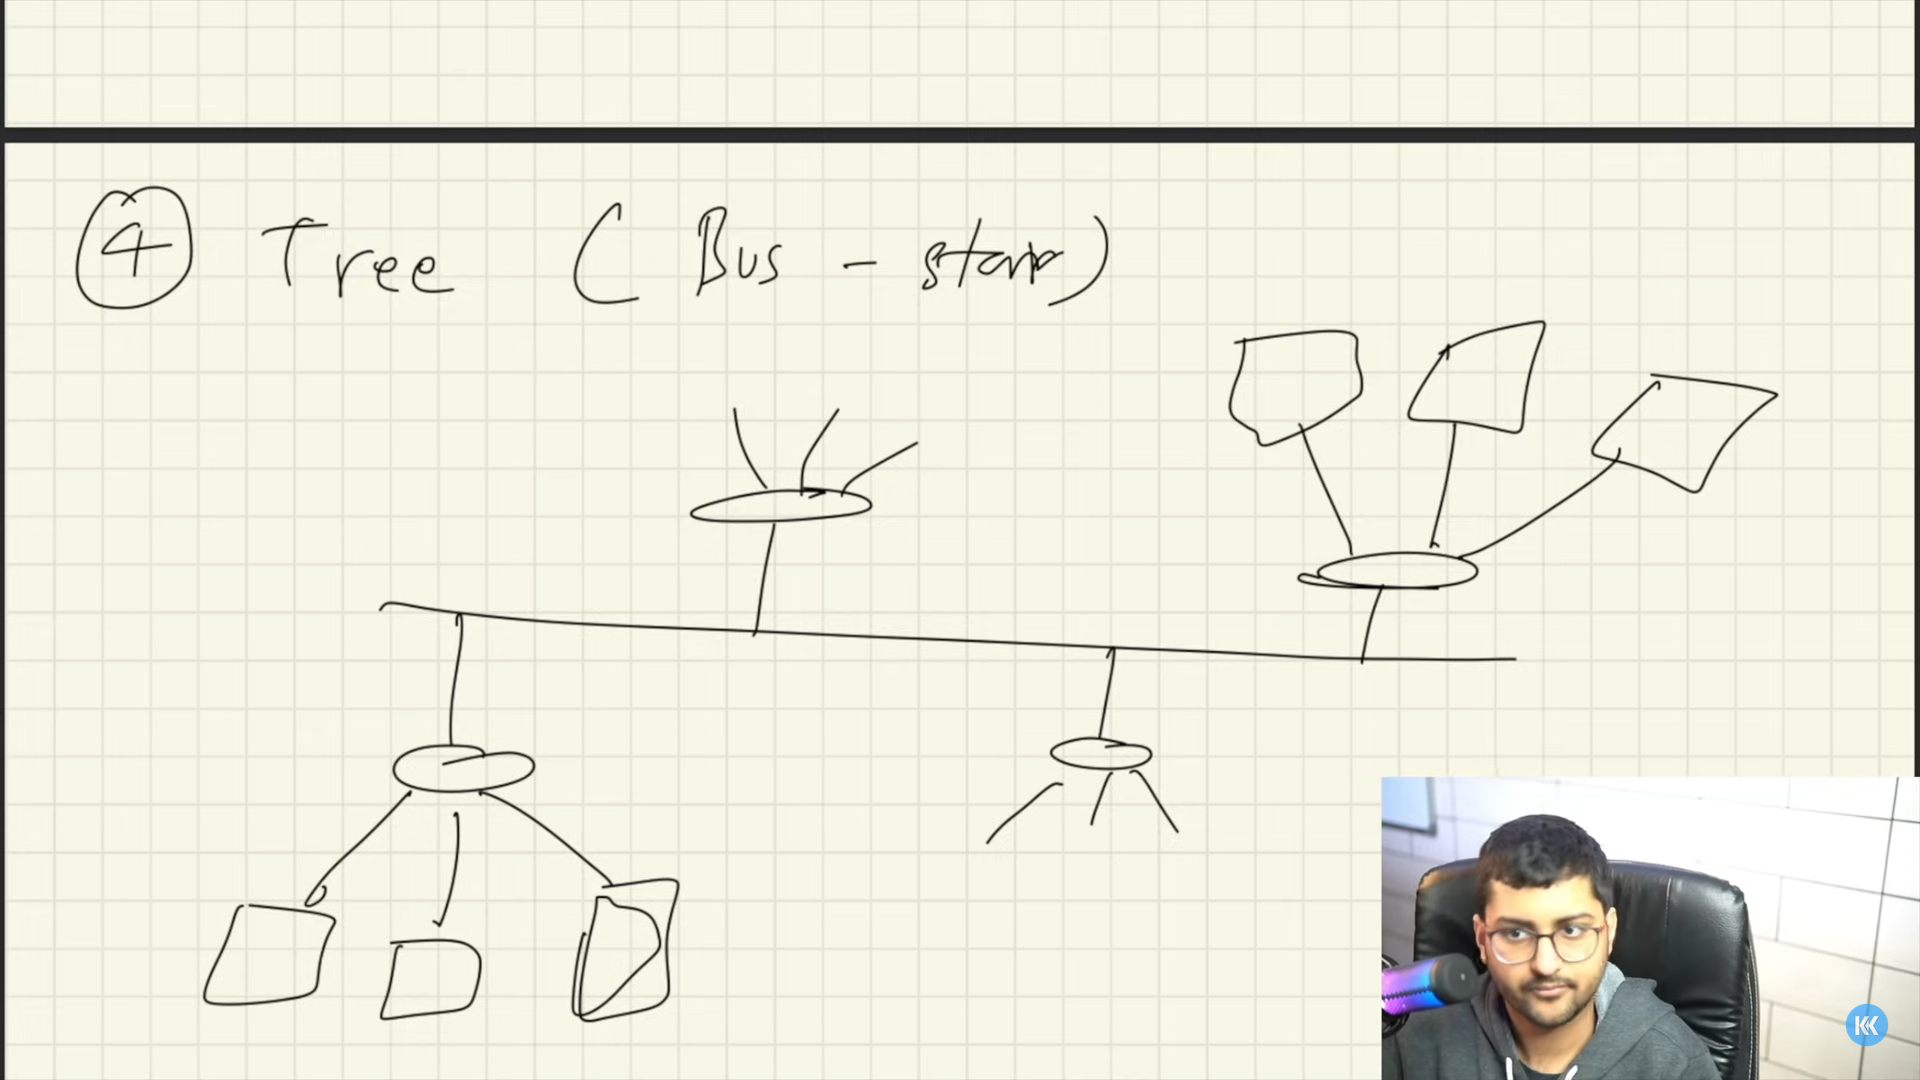 4 Tree (Bus - star)